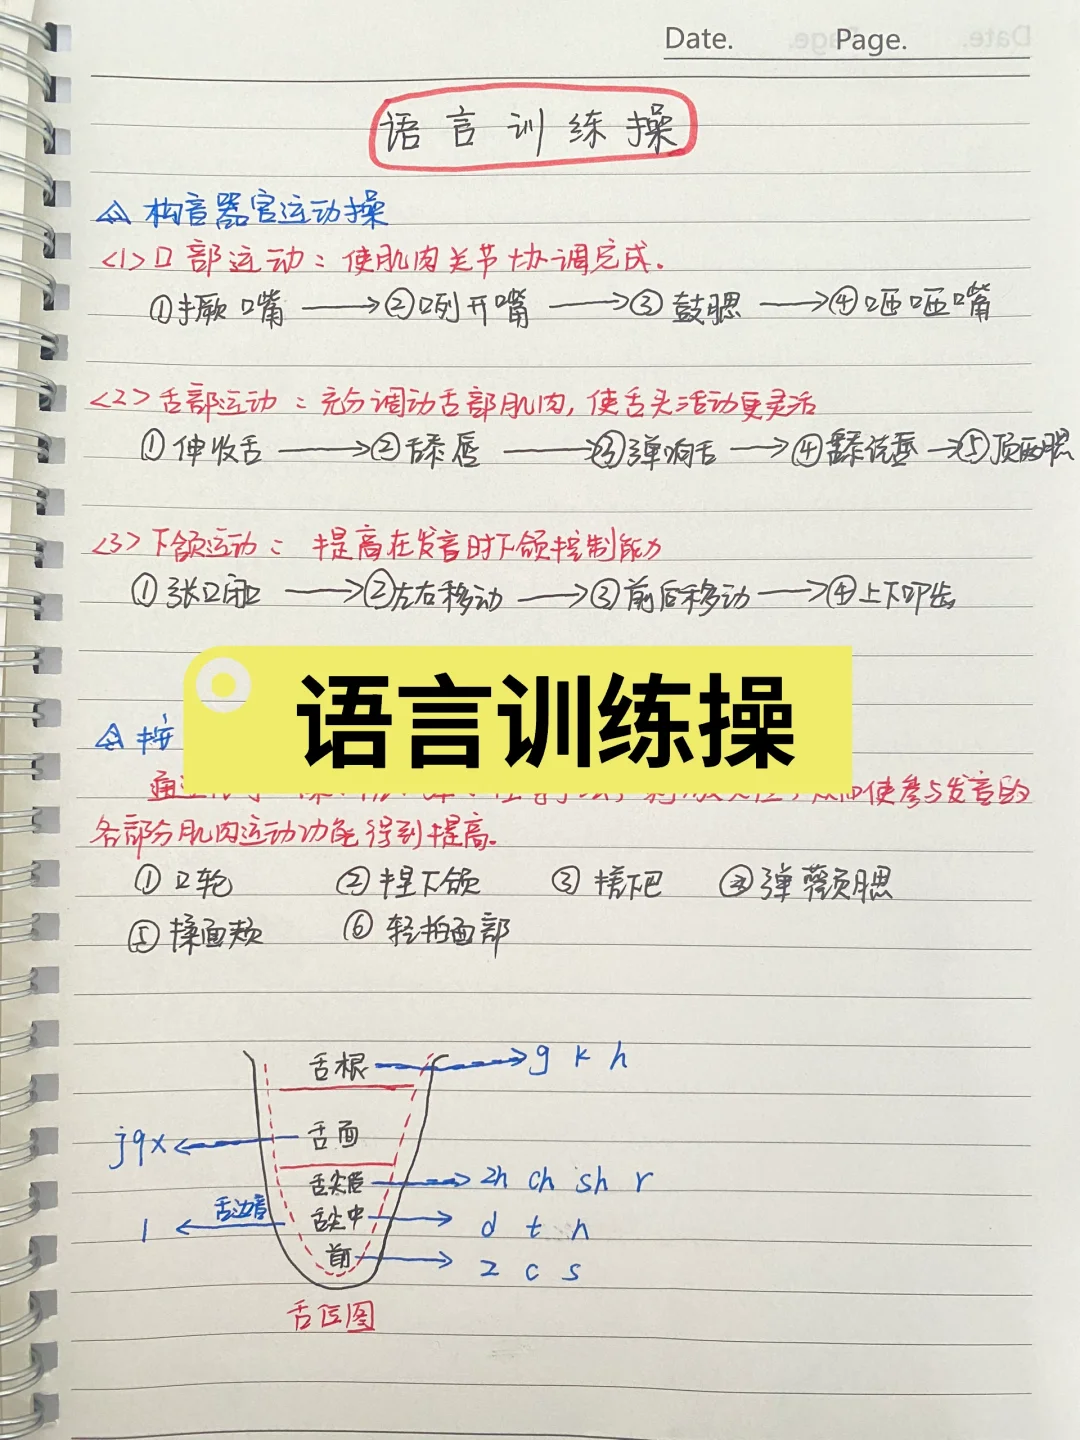 Date. Page.
语言训练操
构音器官运动操
<1>口部运动：使肌肉关节协调完成.
①撅口嘴 → ②咧开嘴 → ③鼓腮 → ④咂咂嘴
<2>舌部运动：充分调动舌部肌肉，使舌头活动更灵活
①伸收舌 → ②舔唇 → ③弹响舌 → ④ → ⑤顶两腮
<3>下颌运动：提高在发音时下颌控制能力
①张口闭口 → ②左右移动 → ③前后移动 → ④上下叩齿
语言训练操
按
通 使参与发音的
各部分肌肉运动功能得到提高.
①口轮 ②捏下颌 ③下巴 ④弹 腮
⑤揉面颊 ⑥轻拍面部
舌根 → g k h
j q x ← 舌面
舌尖后 → zh ch sh r
l ← 舌边音 舌尖中 → d t n
前 → z c s
舌位图